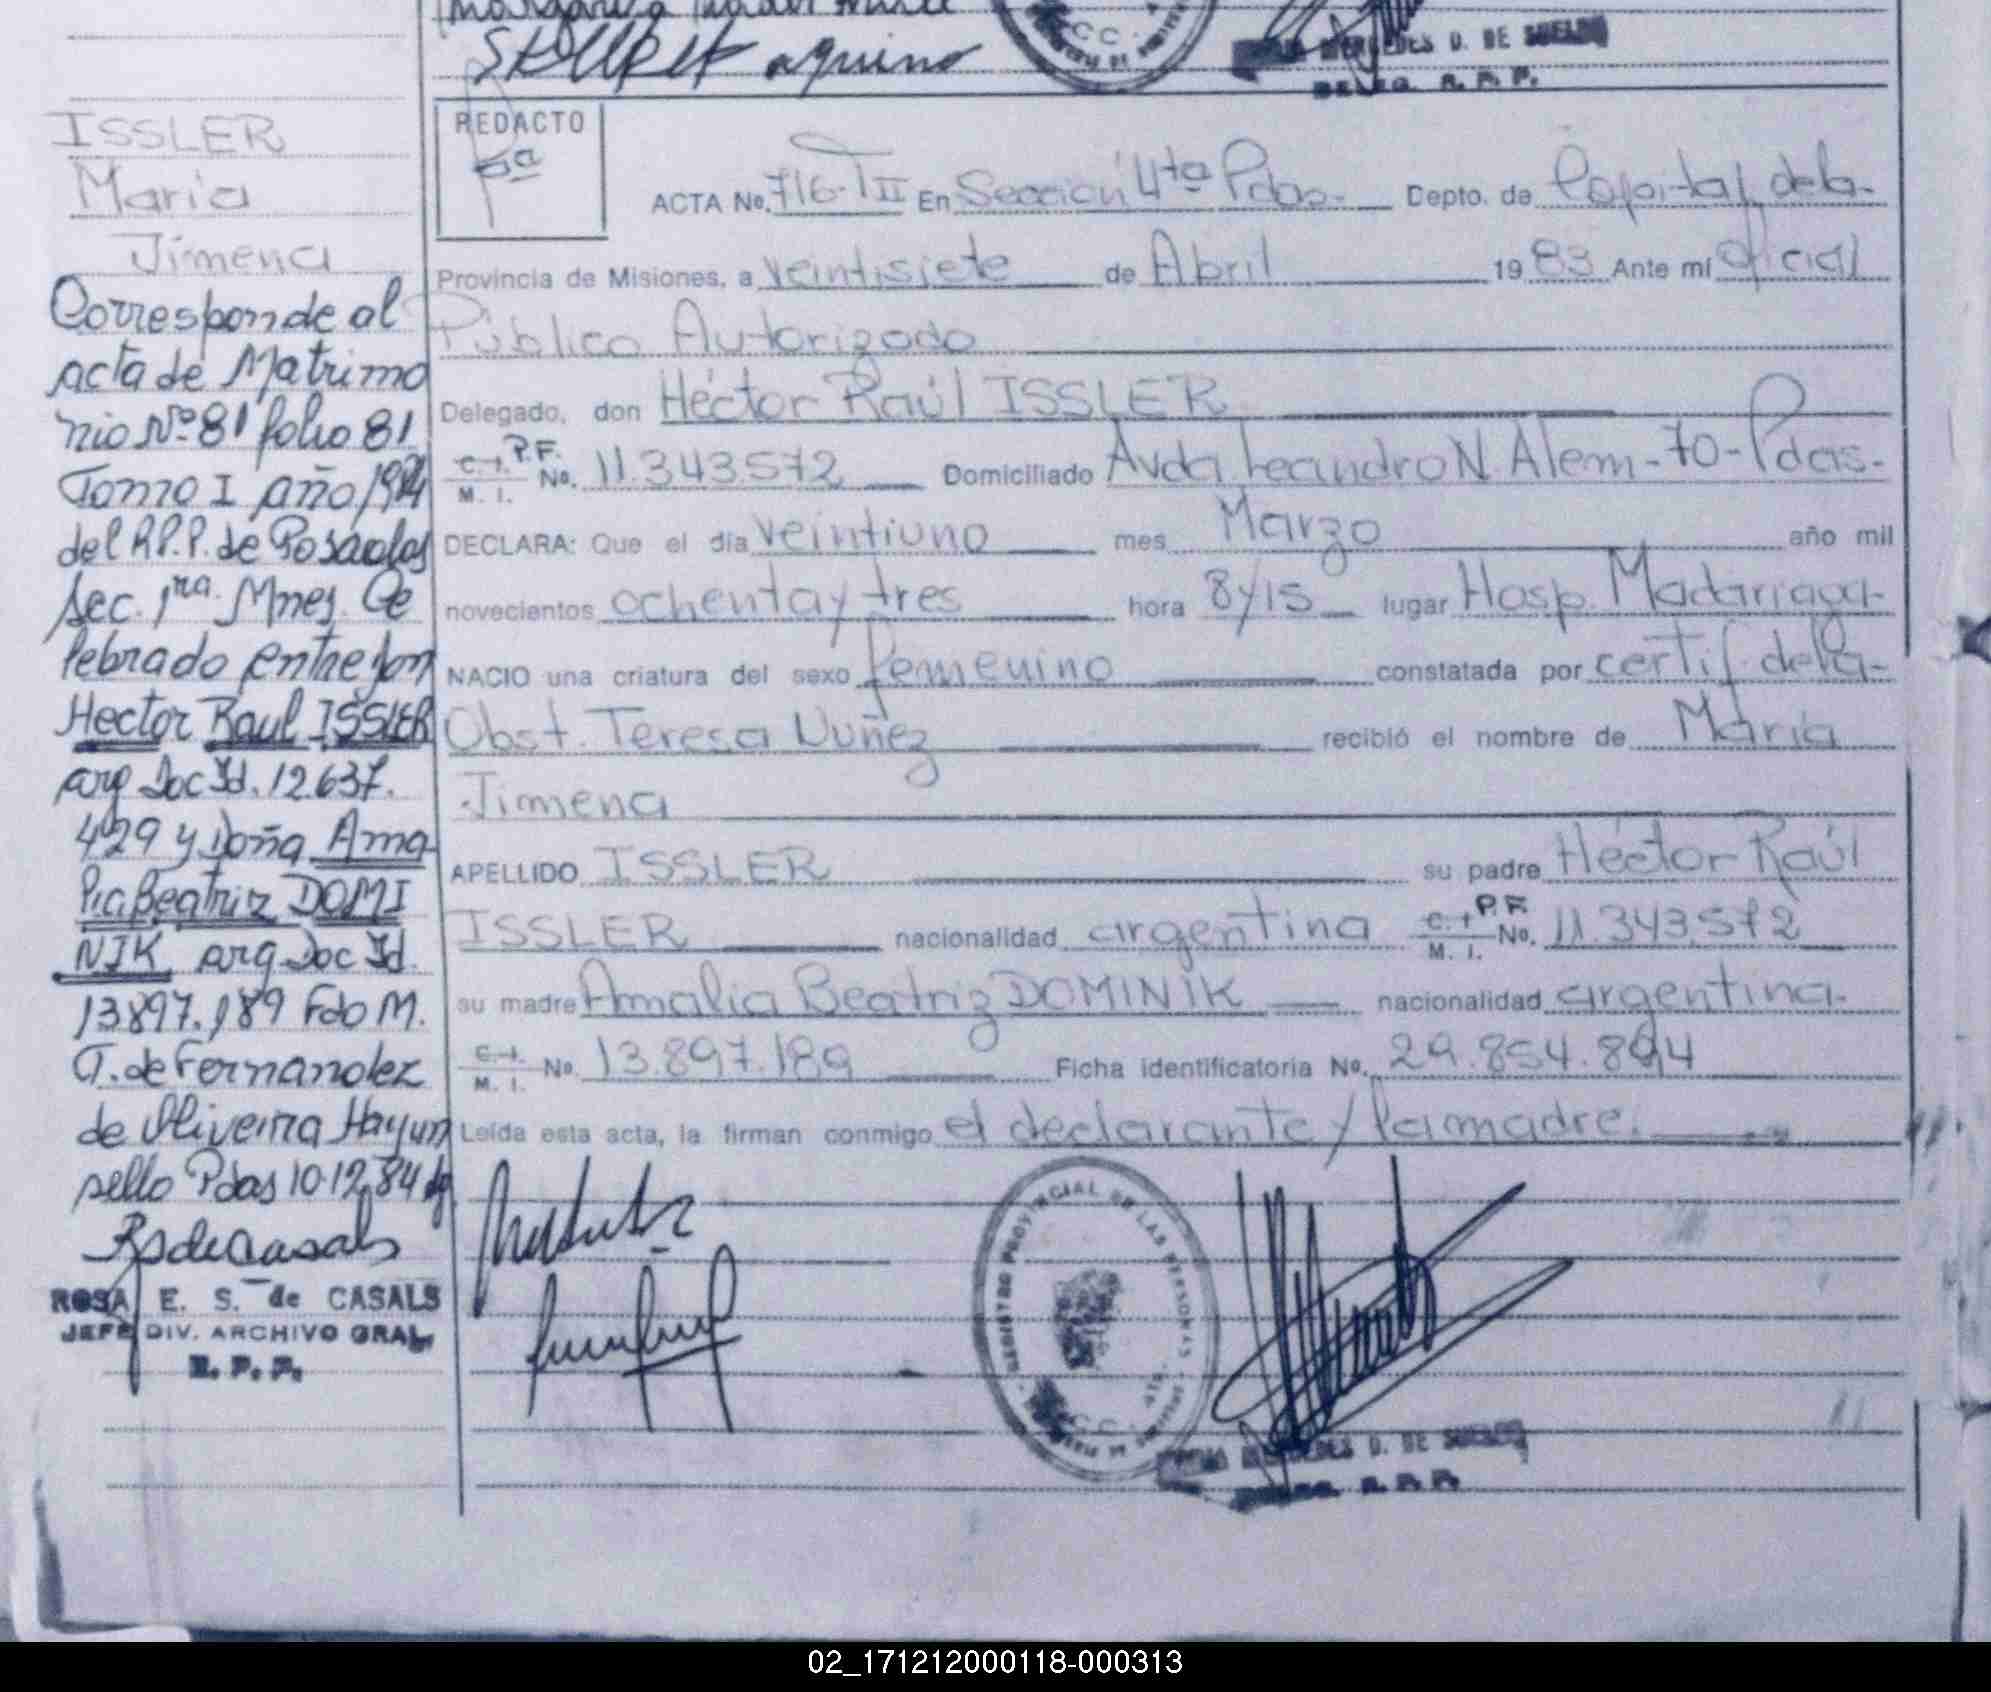 aquino
MERCEDES D. DE SUELDO
DELEG. R. P. P.
ISSLER
María
Jimena
Corresponde al
acta de Matrimo
nio Nº 81 folio 81
Tomo I año 1984
del R.P.P. de Posadas
Sec. 1ra. Mnes. Ce
lebrado entre don
Hector Raul ISSLER
arg Doc Id. 12.637.
429 y doña Ama
lia Beatriz DOMI
NIK arg Doc Id.
13897.189 Fdo M.
T. de Fernandez
de Oliveira Hay un
sello Pdas 10.12.84
RSdeCasals
ROSA E. S. de CASALS
JEFE DIV. ARCHIVO GRAL.
R. P. P.
REDACTO
Pª
ACTA No. 716-TII En Sección 4ta Pdas.- Depto. de Capital de la-
Provincia de Misiones, a veintisiete de Abril 1983 Ante mí oficial
Público Autorizado
Delegado, don Héctor Raúl ISSLER
C. I. P.F. M. I. No. 11.343.572 Domiciliado Avda. Leandro N. Alem-70-Pdas.-
DECLARA: Que el día veintiuno mes Marzo año mil
novecientos ochenta y tres hora 8 y 15 lugar Hosp. Madariaga-
NACIO una criatura del sexo femenino constatada por certif. de la-
Obst. Teresa Nuñez recibió el nombre de María
Jimena
APELLIDO ISSLER su padre Héctor Raúl
ISSLER nacionalidad argentina C. I. P.F. M. I. No. 11.343.572
su madre Amalia Beatriz DOMINIK nacionalidad argentina.
C. I. M. I. No. 13.897.189 Ficha identificatoria No. 29.854.894
Leída esta acta, la firman conmigo el declarante y la madre.
REGISTRO PROVINCIAL DE LAS PERSONAS
MERCEDES D. DE SUELDO
DELEG. R. P. P.
02_171212000118-000313